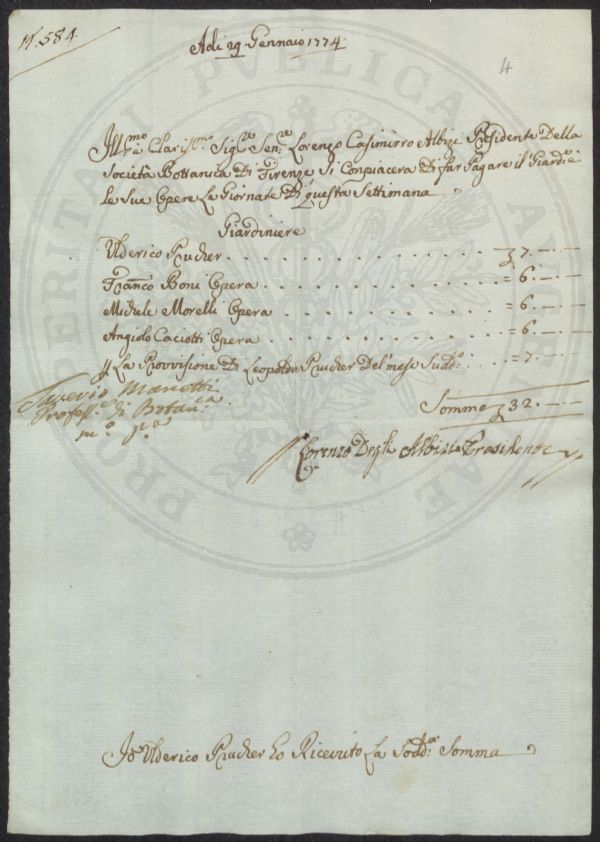 N.° 584.
Adi 29 Gennaio 1774
4
Ill.mo e Clariss.mo Sig.re Sen.re Lorenzo Casimirro Albizi Presidente Della
Società Bottanica Di Firenze Si Conpiacera Di far Pagare il Giard.e e
le Sue Opere Le Giornate Di questa Settimana
Giardiniere
Ulderico Prucher . . . . . . . . . . . . . . 7. — . —
Franco Boni Opera . . . . . . . . . . . . = 6. — . —
Michele Morelli Opera . . . . . . . . . . . = 6. — . —
Angiolo Caciotti Opera . . . . . . . . . . . = 6. — . —
P La Provisione Di Leopoldo Prucher Del mese Sudd.o . . . = 7. — . —
Saverio Manetti
Profess.e di Botan.ca
m.o p.a
Somma 32. — . —
Lorenzo Degli Albizi Presidente
Io Ulderico Prucher ho Ricevuto La Sodd.a Somma
PROSPERITATI PVBLICAE AVGENDAE